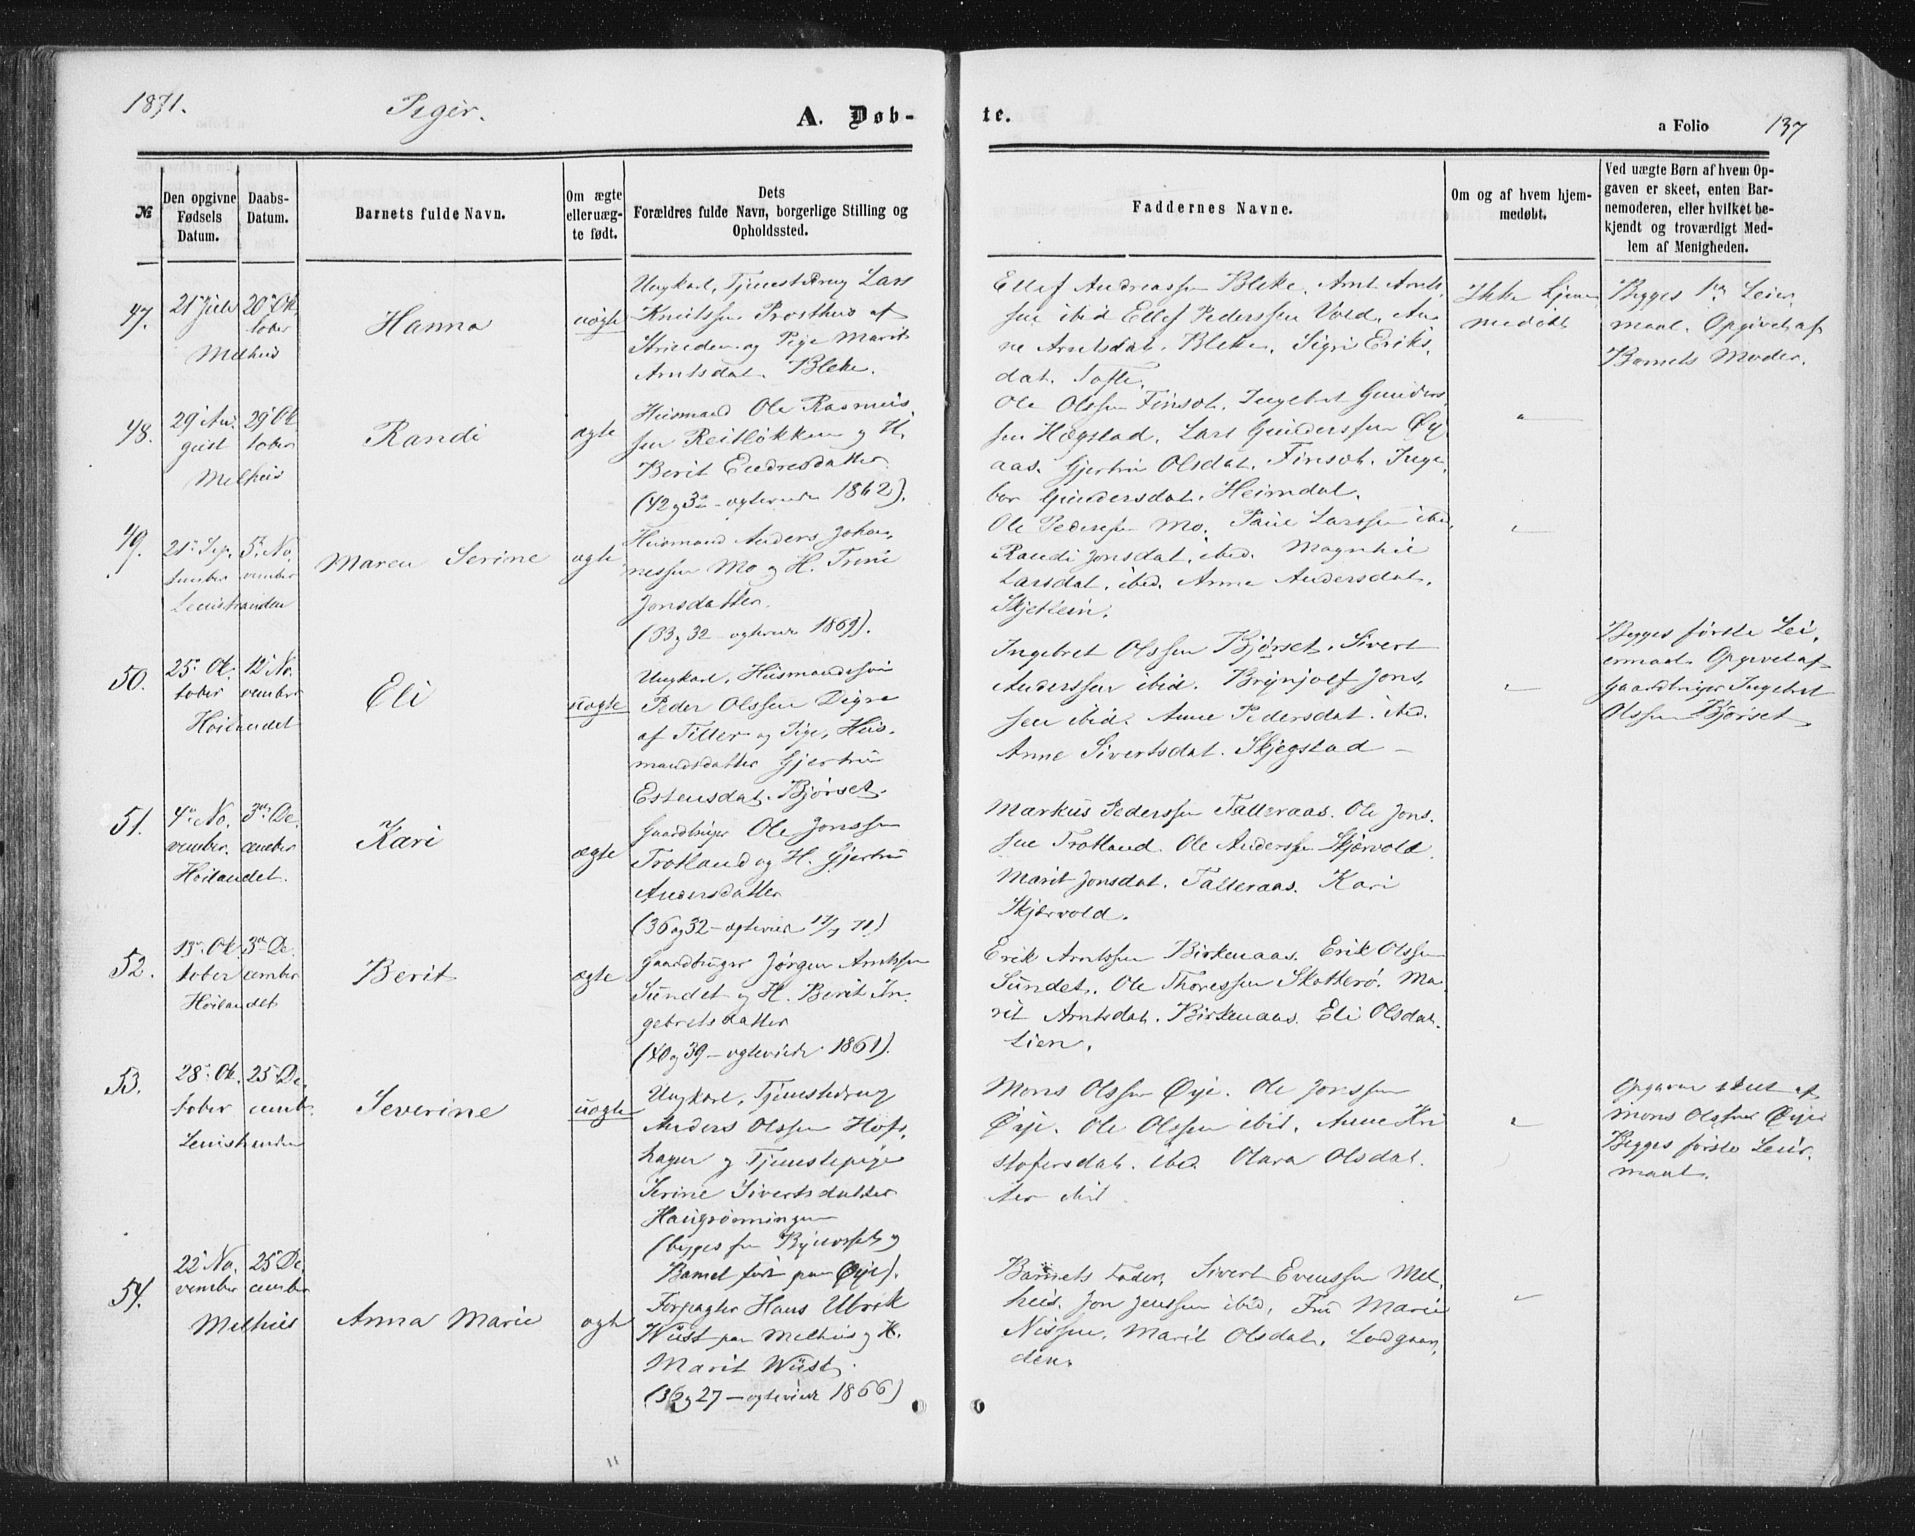 1871. Piger. A. Døb- te. a Folio 137
№
Den opgivne Fødsels Datum.
Daabs-Datum.
Barnets fulde Navn.
Om ægte elleruæg-te født.
Dets
Forældres fulde Navn, borgerlige Stilling og
Opholdssted.
Faddernes Navne.
Om og af hvem hjem-
medøbt.
Ved uægte Børn af hvem Op-
gaven er skeet, enten Bar-
nemoderen, eller hvilket be-
kjendt og troværdigt Med-
lem af Menigheden.
47.
21 Juli
Melhus
20 Ok
tober
Hanna
uægte
Ungkarl, Tjenestedreng Lars
Knutssen Prosthus af
Strinden og Pige Marit
Arntsdat. Bleke.
Ellef Andreassen Bleke. Arnt Arnt
sen ibid Ellef Pederssen Vold. An
ne Arntsdat. Bleke. Sigri Eriks
dat. Tofte.
Ikke hjem
medøbt
Begges 1ste Leier
maal. Opgivet af
Barnets Moder.
48.
29 Au
gust
Melhus
29 Ok
tober
Randi
ægte
Husmand Ole Rasmus
sen Reitløkken og H.
Berit Endresdatter
(42 og 32 - ægteviede 1862).
Ole Olssen Finsot. Ingebret Gunders
sen Hægstad. Lars Gunderssen Øy
aas. Gjertru Olsdat. Finsot. Inge
bor Gundersdat. Heimdal.
"
49.
21 Sep
tember
Leinstranden
5 No
vember
Maren Serine
ægte
Husmand Anders Johan
nessen Mo og H. Trine
Jonsdatter.
(33 og 32 - ægteviede 1869).
Ole Pedersen Mo. Paul Larssen ibid
Randi Jonsdat. ibid. Magnhil
Larsdat. ibid. Anne Andersdat.
Skjetlein.
"
50.
25 Ok
tober
Høilandet
12 No
vember
Eli
uægte
Ungkarl, Husmandssøn
Peder Olssen Digre
af Tiller og Pige, Hus
mandsdatter Gjertru
Estensdat. Bjørset.
Ingebret Olssen Bjørset. Sivert
Anderssen ibid. Brynjolf Jons
sen ibid. Anne Pedersdat. ibid.
Anne Sivertsdat. Skjegstad -
"
Begges første Lei
ermaal. Opgivet af
Gaardbruger Ingebret
Olssen Bjørset
51.
4 No
vember.
Høilandet.
3 De
cember
Kari
ægte
Gaardbruger Ole Jonssen
Trotland og H. Gjertru
Andersdatter
(36 og 32 - ægteviede
Markus Pederssen Talleraas. Ole Jons
sen Trotland. Ole Anderssen Skjervold
Marit Jonsdat. Talleraas. Kari
Skjervold.
52.
13 Ok
tober
Høilandet
3 De
cember
Berit
ægte
Gaardbruger Jørgen Arntssen
Sundet og H. Berit In
gebretsdatter
(40 og 39 - ægteviede 1861).
Erik Arntssen Birkenaas. Erik Olssen
Sundet. Ole Thoressen Skotterø. Ma
rit Arntsdat. Birkenaas. Eli Olsdat
Lien.
53.
28 Ok
tober
Leinstranden
25 De
cemb.
Severine
uægte
Ungkarl, Tjenestedreng
Anders Olssen Hofs
hagen og Tjenestepige
Serine Sivertsdatter
Haugrønningen
(begges fra Bynesset og
Barnet født paa Øye).
Mons Olssen Øye. Ole Jonssen
Øye. Ole Olssen ibid. Anne Kri
stofersdat. ibid Olava Olsdat
ter ibid
"
Opgaven skeet af
Mons Olssen Øye
Begges første Leier
maal.
54.
22 No
vember
Melhus
25 De
cember
Anna Marie
ægte
Forpagter Hans Ulrik
Wüst paa Melhus og H.
Marit Wüst
(36 og 27 - ægteviede 1866)
Barnets Fader. Sivert Evenssen Mel
hus. Jon Jenssen ibid. Fru Marie
Nissen. Marit Olsdat. Ledgaar
den.
"